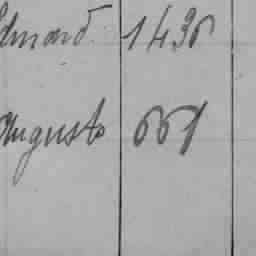 Eduard 1436
Auguste 661